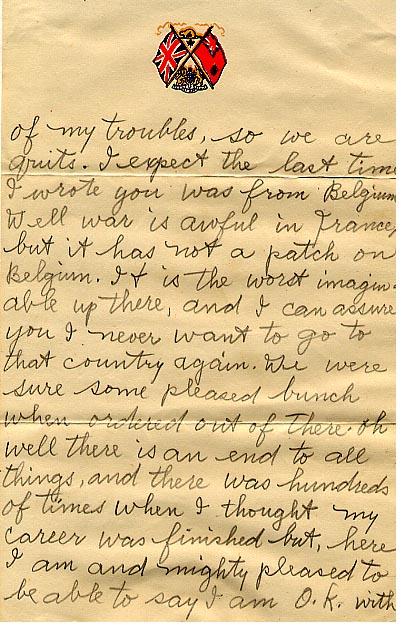 of my troubles, so we are
quits. I expect the last time
I wrote you was from Belgium
Well war is awful in France,
but it has not a patch on
Belgium. It is the worst imagin-
able up there, and I can assure
you I never want to go to
that country again. We were
sure some pleased bunch
when ordered out of there. Oh
well there is an end to all
things, and there was hundreds
of times when I thought my
career was finished but, here
I am and mighty pleased to
be able to say I am O.K. with